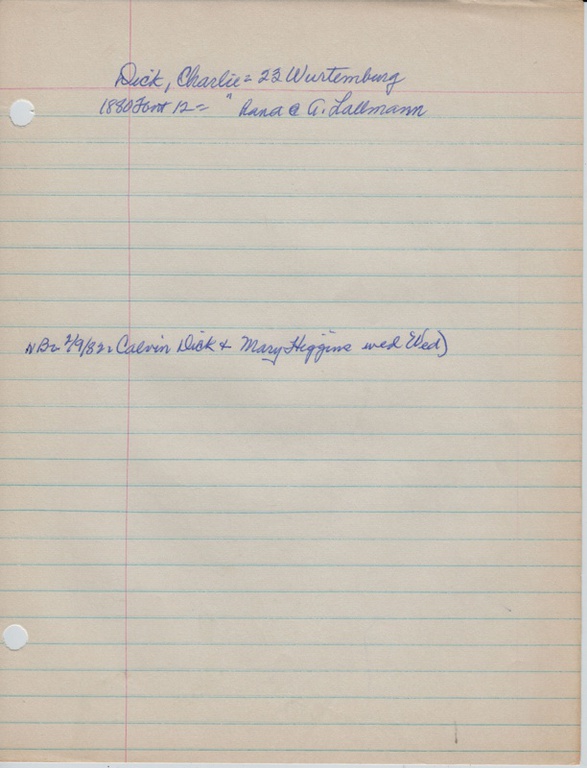 Dick, Charlie = 23 Wurtemburg
1880 Font 12 = " hand @ A. Lallmann
NB = 2/9/82 = Calvin Dick & Mary Higgins wed Wed)